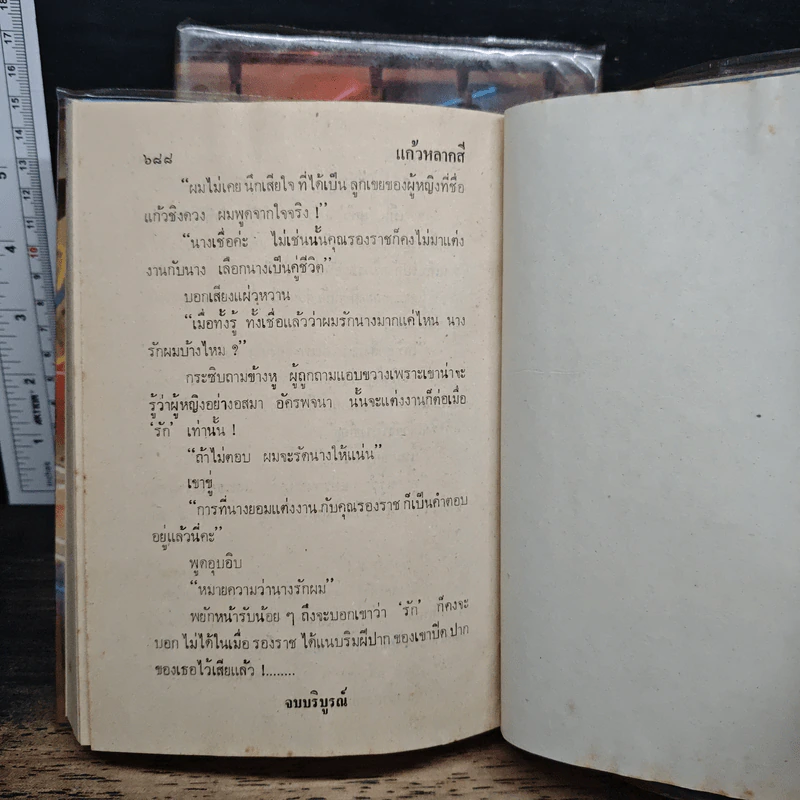 ๖๘๘ แก้วหลากสี
“ผมไม่เคย นึกเสียใจ ที่ได้เป็น ลูกเขยของผู้หญิงที่ชื่อ
แก้วชิงดวง ผมพูดจากใจจริง !”
“นางเชื่อค่ะ ไม่เช่นนั้นคุณรองราชก็คงไม่มาแต่ง
งานกับนาง เลือกนางเป็นคู่ชีวิต”
บอกเสียงแผ่วหวาน
“เมื่อทั้งรู้ ทั้งเชื่อแล้วว่าผมรักนางมากแค่ไหน นาง
รักผมบ้างไหม ?”
กระซิบถามข้างหู ผู้ถูกถามแอบขวางเพราะเขาน่าจะ
รู้ว่าผู้หญิงอย่างอสมา อัครพจนา นั้นจะแต่งงานก็ต่อเมื่อ
‘รัก’ เท่านั้น !
“ถ้าไม่ตอบ ผมจะรัดนางให้แน่น”
เขาขู่
“การที่นางยอมแต่งงาน กับคุณรองราช ก็เป็นคำตอบ
อยู่แล้วนี่คะ”
พูดอุบอิบ
“หมายความว่านางรักผม”
พยักหน้ารับน้อย ๆ ถึงจะบอกเขาว่า ‘รัก’ ก็คงจะ
บอก ไม่ได้ในเมื่อ รองราช ได้แนบริมฝีปาก ของเขาปิด ปาก
ของเธอไว้เสียแล้ว !........
จบบริบูรณ์